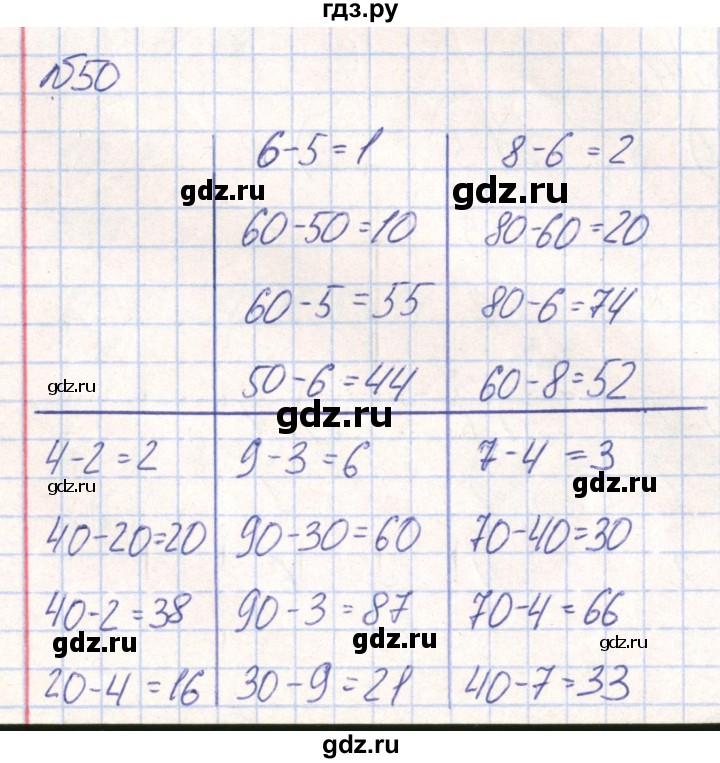 гдз.ру
№50
6-5=1 8-6=2
gdz.ru gdz.ru
60-50=10 80-60=20
60-5=55 80-6=74
gdz.ru 50-6=44 60-8=52
gdz.ru
4-2=2 9-3=6 7-4=3
gdz.ru gdz.ru
40-20=20 90-30=60 70-40=30
40-2=38 90-3=87 70-4=66
gdz.ru gdz.ru gdz.ru
20-4=16 30-9=21 40-7=33
gdz.ru